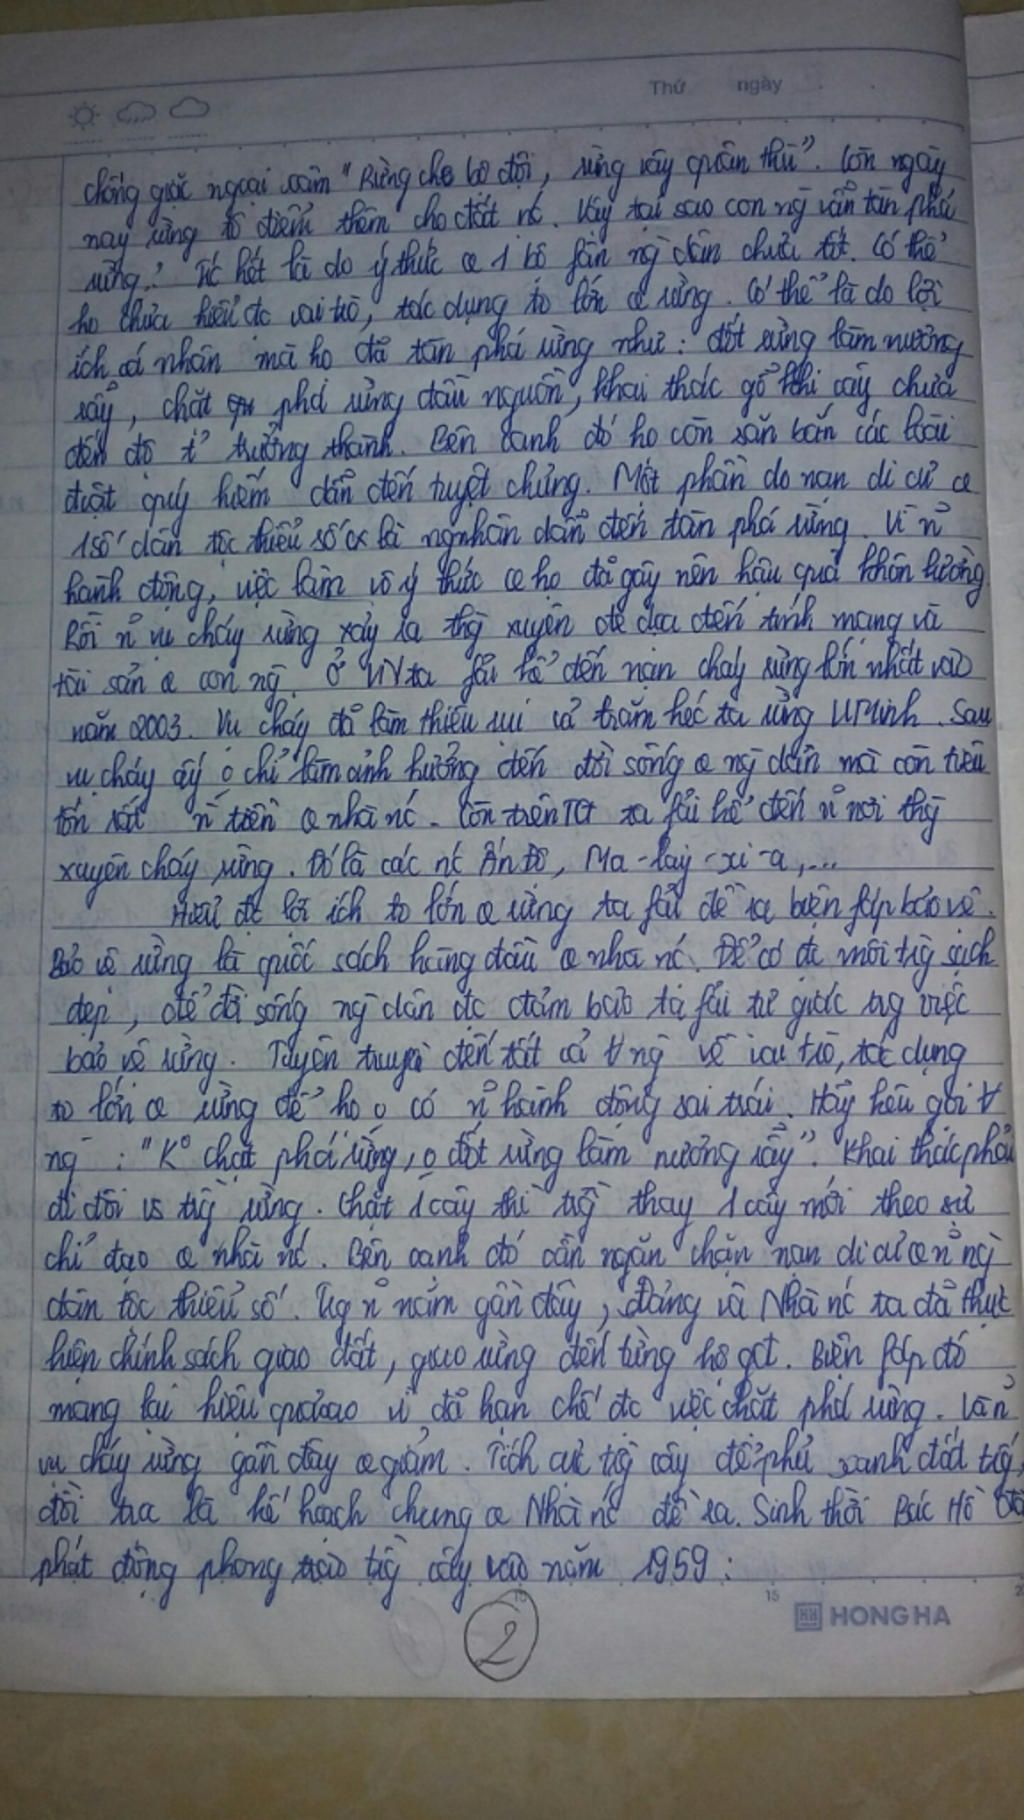 Thứ ngày
chống giặc ngoại xâm "Rừng che bộ đội, rừng vây quân thù". Còn ngày
nay rừng tô điểm thêm cho đất nc. Vậy tại sao con ng vẫn tàn phá
rừng? Tc hết là do ý thức ca 1 bộ fận ng dân chưa tốt. Có thể
họ chưa hiểu đc vai trò, tác dụng to lớn ca rừng. Có thể là do lợi
ích cá nhân mà họ đã tàn phá rừng như: đốt rừng làm nương
rẫy, chặt phá rừng đầu nguồn, khai thác gỗ khi cây chưa
đến độ trưởng thành. Bên cạnh đó họ còn săn bắn các loài
đvật quý hiếm dẫn đến tuyệt chủng. Một phần do nạn di cư ca
1 số dân tộc thiểu số là ng nhân dẫn đến tàn phá rừng. Vì n~
hành động, việc làm vô ý thức ca họ đã gây nên hậu quả khôn lường
Rồi n~ vụ cháy rừng xảy ra thg xuyên đe dọa đến tính mạng và
tài sản ca con ng. Ở VN ta fải kể đến nạn cháy rừng lớn nhất vào
năm 2003. Vụ cháy đã làm thiêu rụi cả trăm héc ta rừng U Minh. Sau
vụ cháy ấy o chỉ làm ảnh hưởng đến đời sống ca ng dân mà còn tiêu
tốn rất n` tiền ca nhà nc. Còn trên TG ta fải kể đến n~ nơi thg
xuyên cháy rừng. Đó là các nc Ấn Độ, Ma-lay-xi-a,...
Hiểu đc lợi ích to lớn ca rừng ta fải đề ra biện fáp bảo vệ.
Bảo vệ rừng là quốc sách hàng đầu ca nhà nc. Để có đc môi trg sạch
đẹp, để đời sống ng dân đc đảm bảo ta fải tự giác trg việc
bảo vệ rừng. Tuyên truyền đến tất cả ∀ ng về vai trò, tác dụng
to lớn ca rừng để họ o có n~ hành động sai trái. Hãy kêu gọi ∀
ng : "K° chặt phá rừng, o đốt rừng làm nương rẫy". Khai thác phải
đi đôi vs trg rừng. Chặt 1 cây thì trg thay 1 cây mới theo sự
chỉ đạo ca nhà nc. Bên cạnh đó cần ngăn chặn nạn di cư ca n~ ng
dân tộc thiểu số. Trg n~ năm gần đây, Đảng và Nhà nc ta đã thực
hiện chính sách giao đất, giao rừng đến từng hộ gđ. Biện fáp đó
mang lại hiệu quả cao vì đã hạn chế đc việc chặt phá rừng.
vụ cháy rừng gần đây giảm. Tích cực trg cây để phủ xanh đất trg,
đồi trọc là kế hoạch chung ca Nhà nc đề ra. Sinh thời Bác Hồ đã
phát động phong trào trg cây vào năm 1959:
15
HONG HA
2